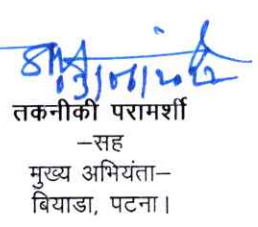 तकनीकी परामर्शी
–सह
मुख्य अभियंता–
बियाडा, पटना।